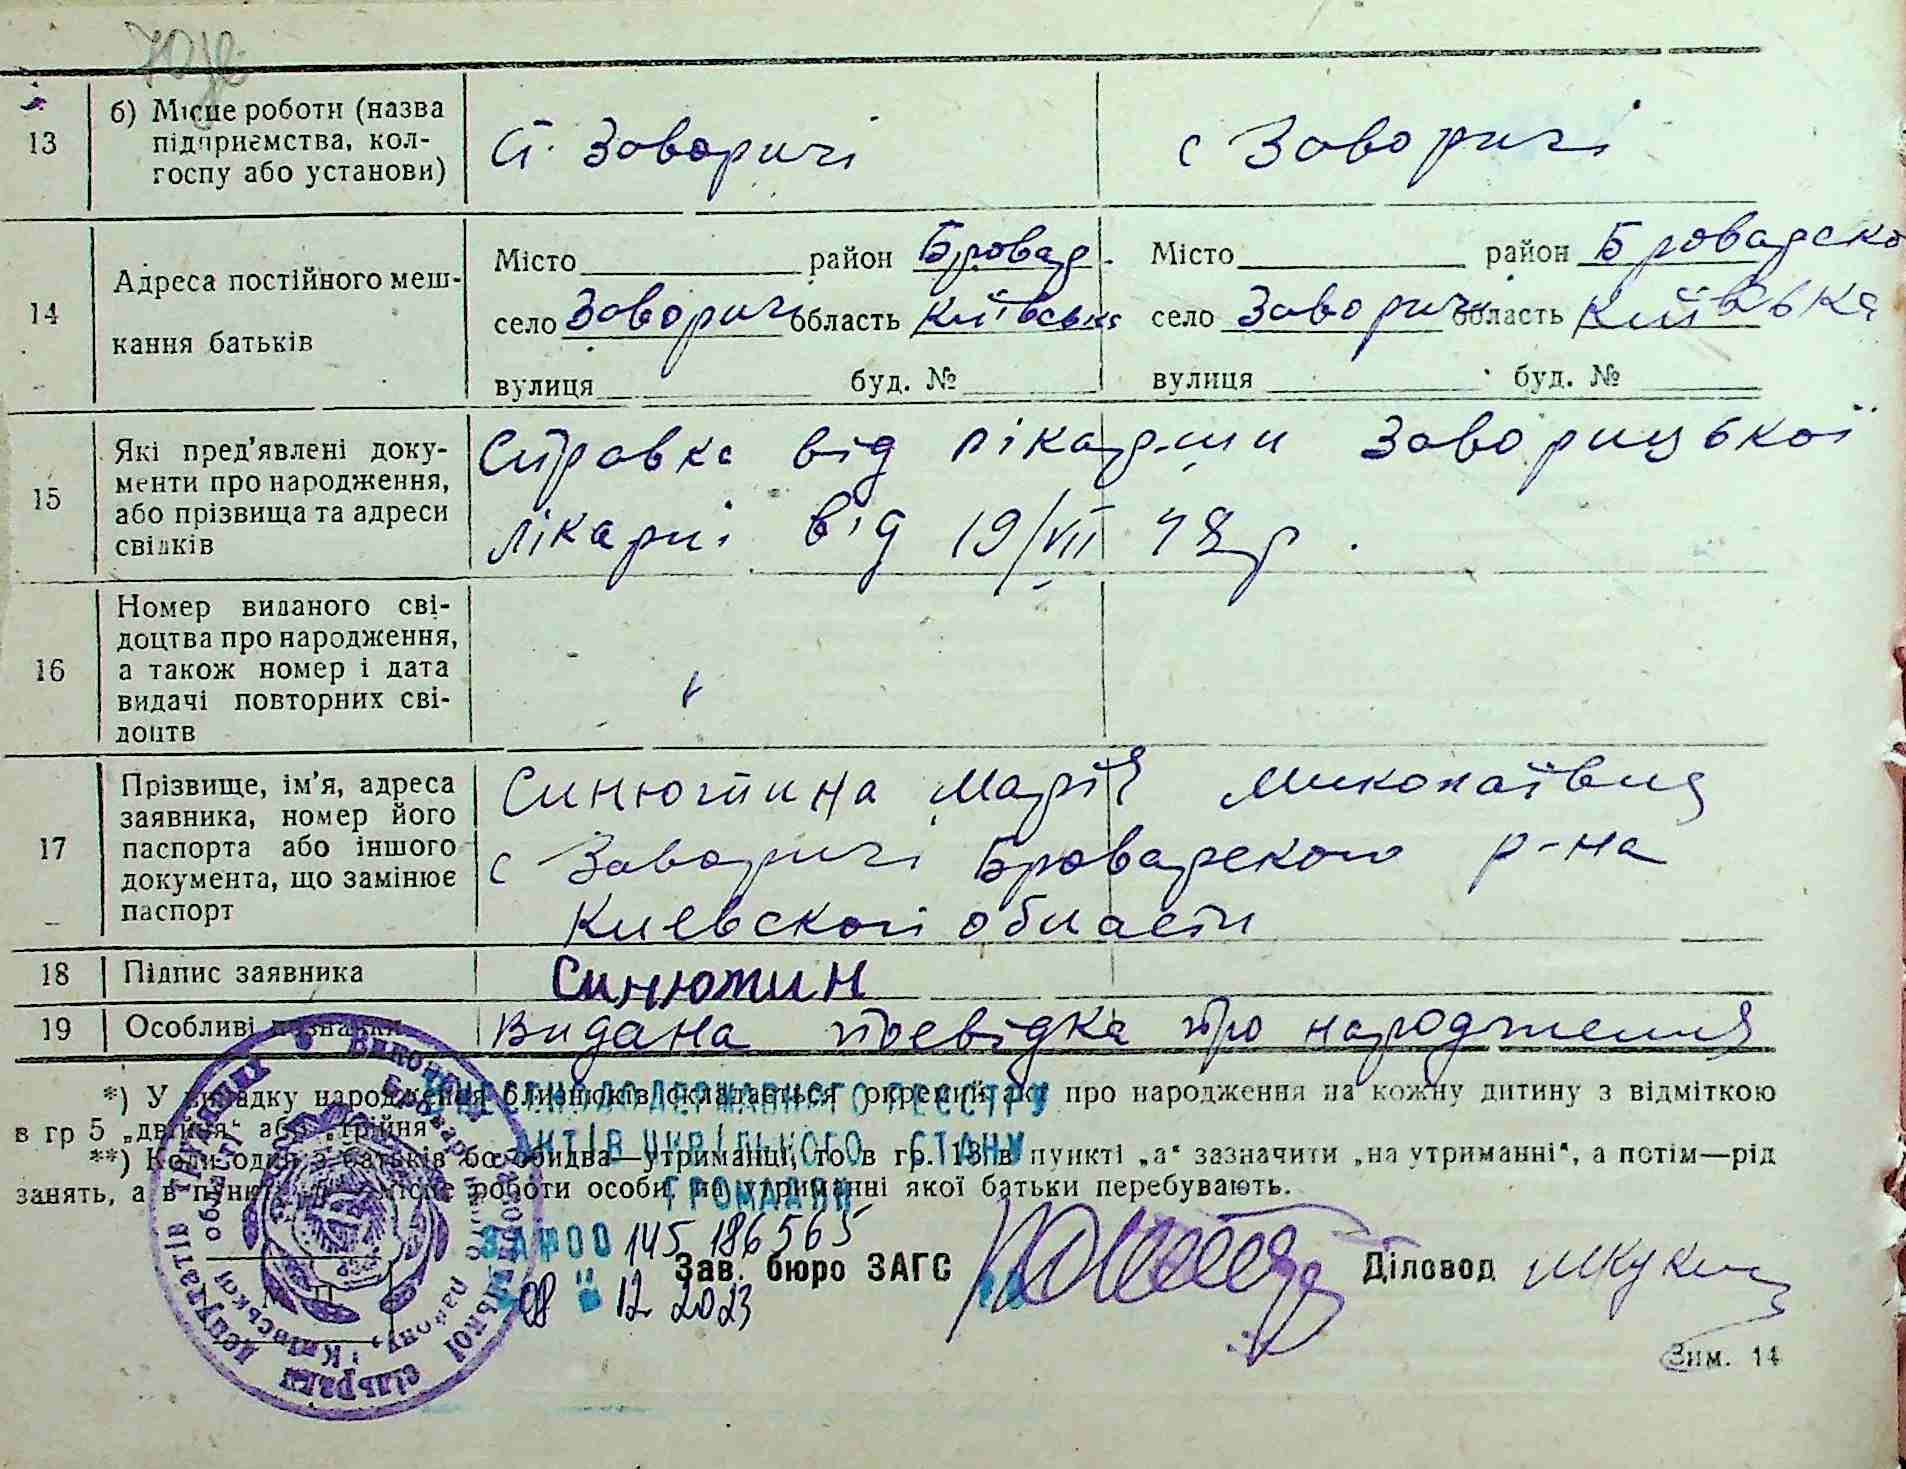 13 б) Місце роботи (назва підприємства, колгоспу або установи)
ст. Заворичі
с Заворичі
14 Адреса постійного мешкання батьків
Місто район Бровар.
село Заворичі область Київська
вулиця буд. №
Місто район Броварско
село Заворичі область Київська
вулиця буд. №
15 Які пред'явлені документи про народження, або прізвища та адреси свідків
Справка від лікарши Заворицької
лікарні від 19/VII 48 р.
16 Номер виданого свідоцтва про народження, а також номер і дата видачі повторних свідоцтв
17 Прізвище, ім'я, адреса заявника, номер його паспорта або іншого документа, що замінює паспорт
Синютина Марія Миколаївна
с Заворичі Броварского р-на
Киевской области
18 Підпис заявника
Синютин
19 Особливі зазначки
Видана посвідка про народження
*) У випадку народження близнюків складається окремий акт про народження на кожну дитину з відміткою
в гр 5 „двійня“ або „трійня“
**) Коли один з батьків або обидва—утриманці, то в гр. 13 в пункті „а“ зазначити „на утриманні“, а потім—рід
занять, а в пункті місце роботи особи, на утриманні якої батьки перебувають.
ВНЕСЕНО ДО ДЕРЖАВНОГО РЕЄСТРУ
АКТІВ ЦИВІЛЬНОГО СТАНУ
ГРОМАДЯН
ЗА № 00 145 186565
08 12 2023
Зав. бюро ЗАГС
Діловод
Зим. 14